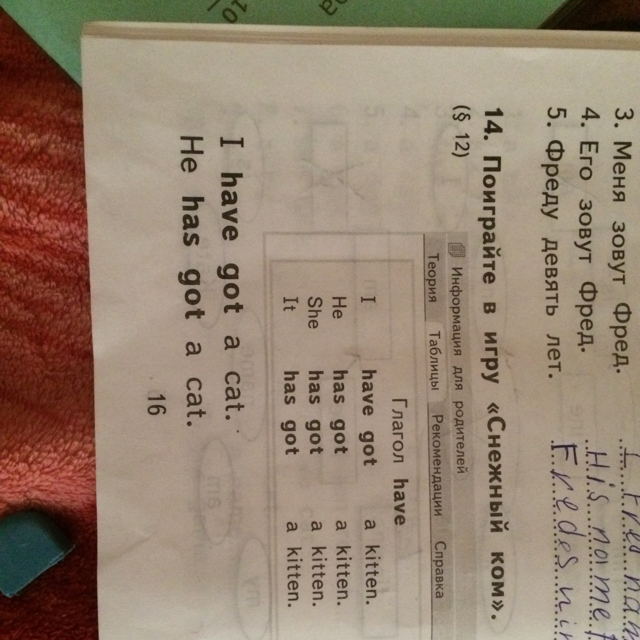 3. Меня зовут Фред.
4. Его зовут Фред. His name
5. Фреду девять лет.
14. Поиграйте в игру «Снежный ком».
(§ 12)
Информация для родителей
Теория Таблицы Рекомендации Справка
Глагол have
I have got a kitten.
He has got a kitten.
She has got a kitten.
It has got a kitten.
I have got a cat.
He has got a cat.
16